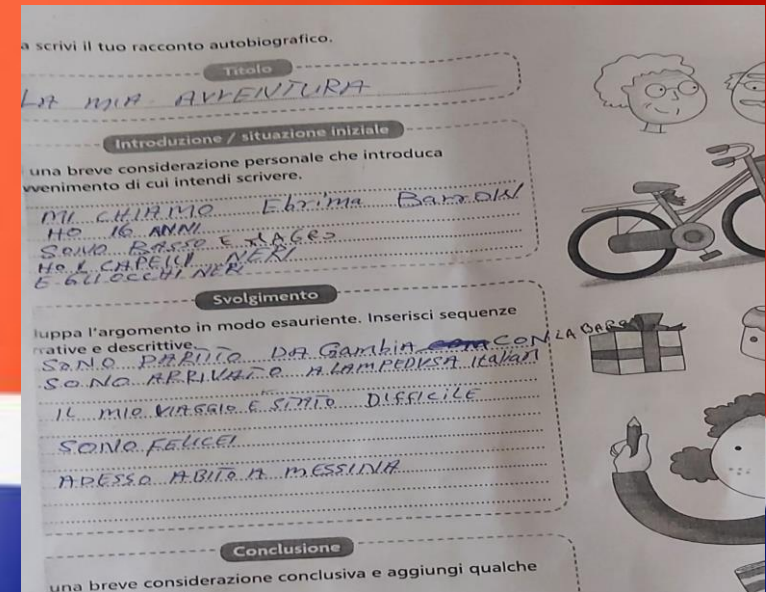 a scrivi il tuo racconto autobiografico.
Titolo
LA MIA AVVENTURA
Introduzione / situazione iniziale
una breve considerazione personale che introduca
vvenimento di cui intendi scrivere.
MI CHIAMO Ebrima Barrow
HO 16 ANNI
SONO BASSO E MAGRO
HO I CAPELLI NERI
E GLI OCCHI NERI
Svolgimento
luppa l'argomento in modo esauriente. Inserisci sequenze
rative e descrittive.
SONO PARTITO DA Gambia CON LA BARCA
SONO ARRIVATO A LAMPEDUSA Italian
IL MIO VIAGGIO E STATO DIFFICILE
SONO FELICE!
ADESSO ABITO A MESSINA
Conclusione
una breve considerazione conclusiva e aggiungi qualche